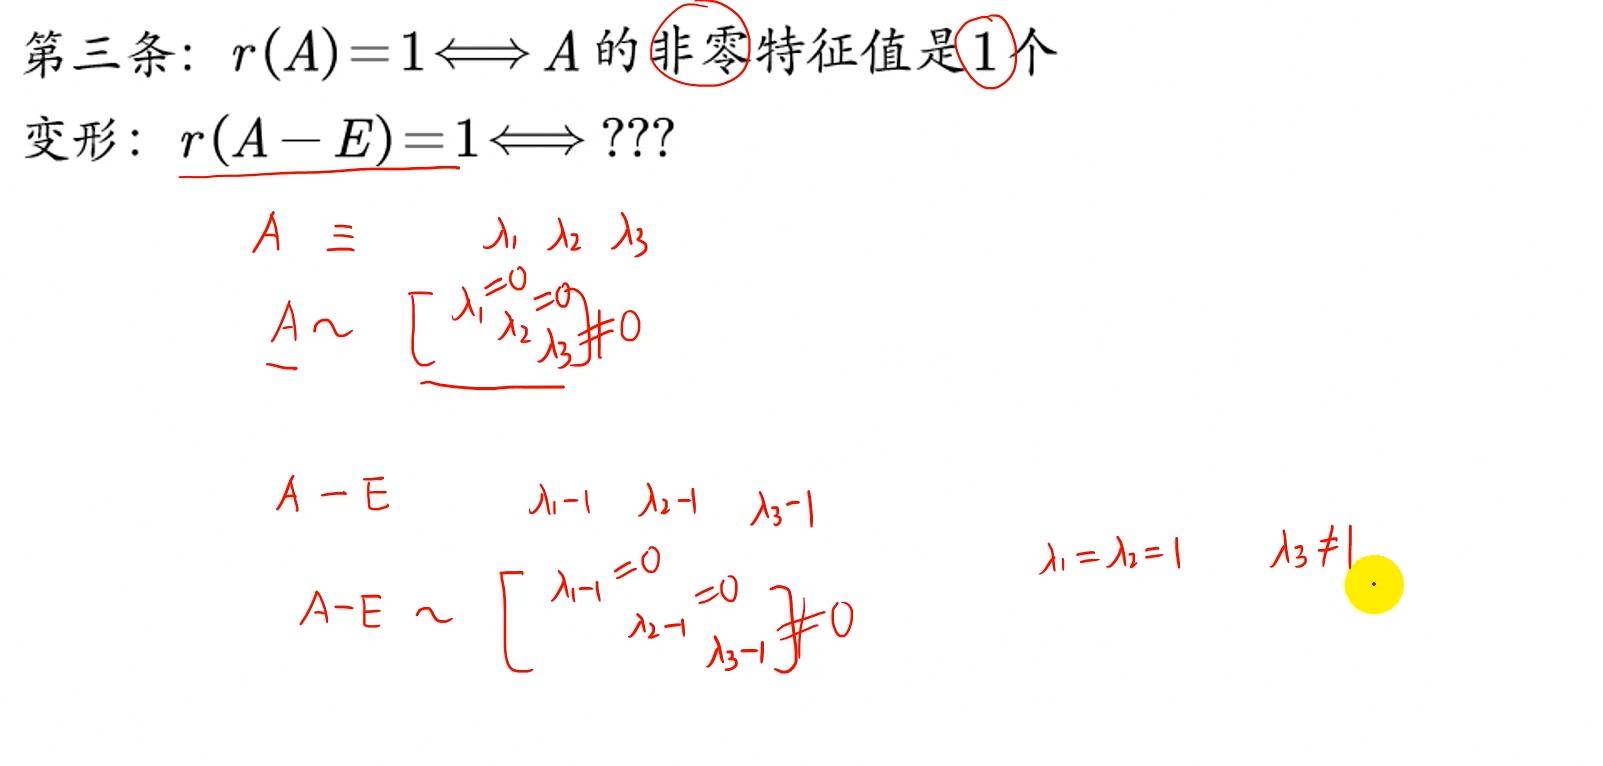 第三条：r(A)=1⟺A 的非零特征值是1个
变形：r(A－E)=1⟺???
A 三 λ₁ λ₂ λ₃
A~ [λ₁=0 λ₂=0 λ₃]≠0
A－E λ₁-1 λ₂-1 λ₃-1
λ₁=λ₂=1 λ₃≠1
A-E ~ [λ₁-1=0 λ₂-1=0 λ₃-1]≠0